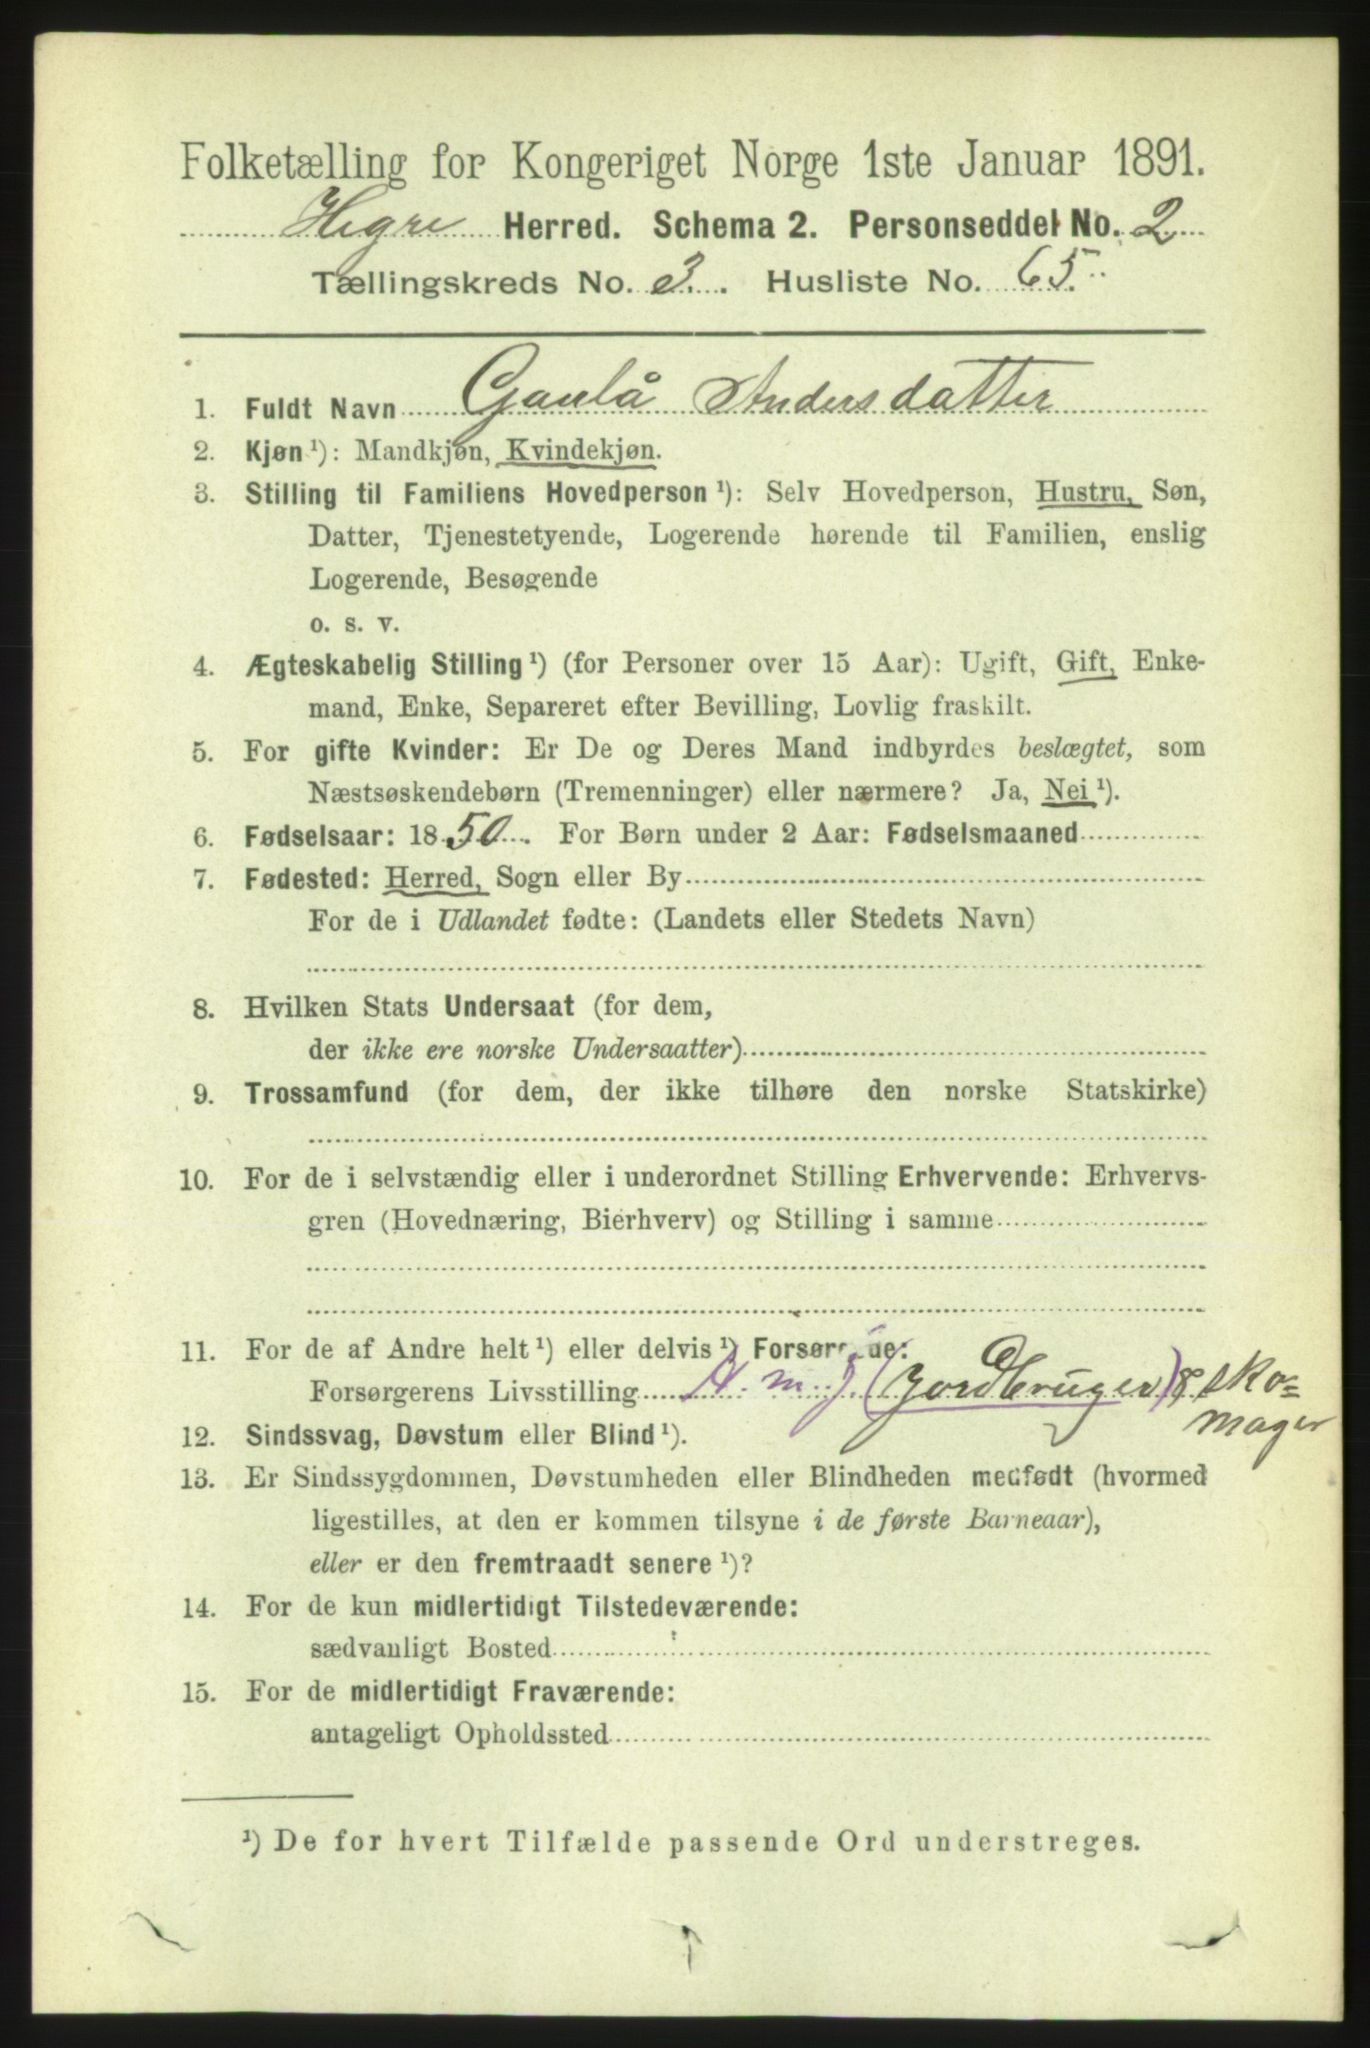 Folketælling for Kongeriget Norge 1ste Januar 1891.
Hegre Herred. Schema 2. Personseddel No. 2
Tællingskreds No. 3. Husliste No. 65.
1. Fuldt Navn Gaulå Andersdatter
2. Kjøn ¹): Mandkjøn, Kvindekjøn.
3. Stilling til Familiens Hovedperson ¹): Selv Hovedperson, Hustru, Søn,
Datter, Tjenestetyende, Logerende hørende til Familien, enslig
Logerende, Besøgende
o. s. v.
4. Ægteskabelig Stilling ¹) (for Personer over 15 Aar): Ugift, Gift, Enke-
mand, Enke, Separeret efter Bevilling, Lovlig fraskilt.
5. For gifte Kvinder: Er De og Deres Mand indbyrdes beslægtet, som
Næstsøskendebørn (Tremenninger) eller nærmere? Ja, Nei ¹).
6. Fødselsaar: 1850. For Børn under 2 Aar: Fødselsmaaned
7. Fødested: Herred, Sogn eller By
For de i Udlandet fødte: (Landets eller Stedets Navn)
8. Hvilken Stats Undersaat (for dem,
der ikke ere norske Undersaatter)
9. Trossamfund (for dem, der ikke tilhøre den norske Statskirke)
10. For de i selvstændig eller i underordnet Stilling Erhvervende: Erhvervs-
gren (Hovednæring, Bierhverv) og Stilling i samme
11. For de af Andre helt ¹) eller delvis ¹) Forsørgede:
Forsørgerens Livsstilling H. m. J. (Jordbruger) & Sko=
mager
12. Sindssvag, Døvstum eller Blind ¹).
13. Er Sindssygdommen, Døvstumheden eller Blindheden medfødt (hvormed
ligestilles, at den er kommen tilsyne i de første Barneaar),
eller er den fremtraadt senere ¹)?
14. For de kun midlertidigt Tilstedeværende:
sædvanligt Bosted
15. For de midlertidigt Fraværende:
antageligt Opholdssted
¹) De for hvert Tilfælde passende Ord understreges.